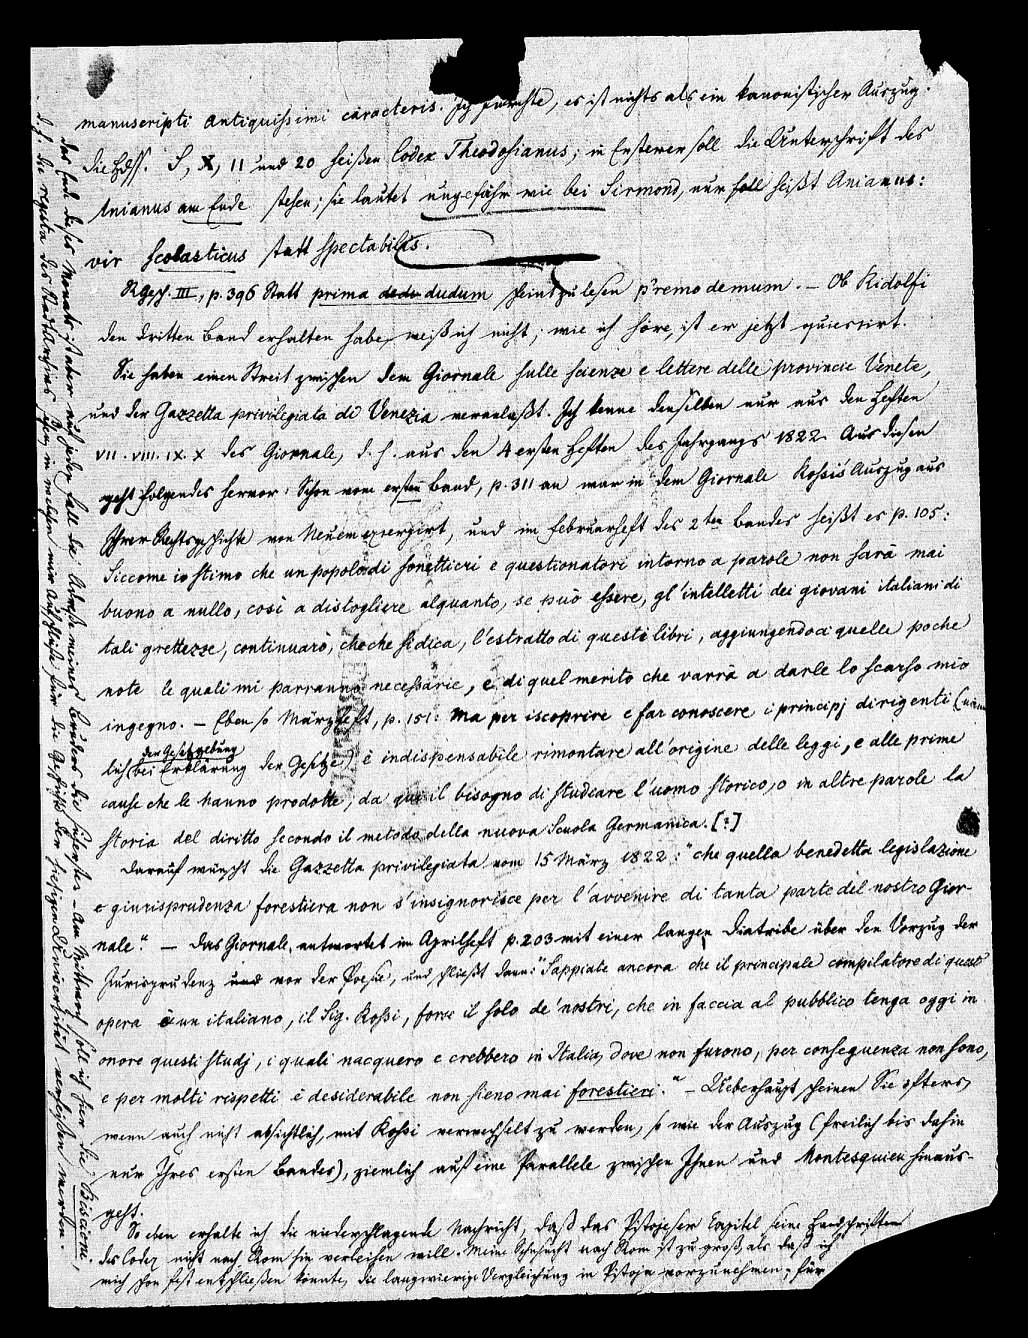 manuscripti antiquissimi caracteris. Ich fürchte, es ist nichts als ein kanonistischer Auszug.
Die Hdss. S, X, 11 und 20 heißen Codex Theodosianus; in Ersterer soll die Unterschrift des
Anianus am Ende stehen; sie lautet ungefähr wie bei Sirmond, nur soll heißt Anianus:
vir scolasticus statt spectabilis.
Rgesch. III, p. 396 Statt prima dudum scheint zu lesen primo demum. – Ob Ridolfi
den dritten Band erhalten habe, weiß ich nicht; wie ich höre, ist er jetzt quiescirt.
Sie haben einen Streit zwischen dem Giornale sulle scienze e lettere delle provincie Venete,
und der Gazzetta privilegiata di Venezia veranlaßt. Ich kenne denselben nur aus den Heften
VII. VIII. IX. X des Giornale, d. h. aus den 4 ersten Heften des Jahrgangs 1822. Aus diesen
geht folgendes hervor: Schon vom ersten Band, p. 311 an war in dem Giornale Rossis Auszug aus
Ihrer Rechtsgeschichte von Neuem excerpirt, und im Februarheft des 2ten Bandes heißt es p. 105:
Siccome io stimo che un popolo di sonettieri e questionatori intorno a parole non sarà mai
buono a nullo, così a distogliere alquanto, se può essere, gl'intelletti dei giovani italiani di
tali grettezze, continuarò, che che si dica, l'estratto di questi libri, aggiungendoci quelle poche
note le quali mi parranno necessarie, e di quel merito che varrà a darle lo scarso mio
ingegno. – Eben so Märzheft, p. 151: Ma per iscoprire e far conoscere i principj dirigenti (näm
lich bei Erklärung der Gesetze) è indispensabile rimontare all'origine delle leggi, e alle prime
der Gesetzgebung
cause che le hanno prodotte; da qui il bisogno di studiare l'uomo storico, o in altre parole la
storia del diritto secondo il metodo della nuova Scuola Germanica. [?]
Darauf wünscht die Gazzetta privilegiata vom 15 März 1822: "che quella benedetta legislazione
e giurisprudenza forestiera non s'insignorisce per l'avvenire di tanta parte del nostro Gior-
nale." – Das Giornale antwortet im Aprilheft p. 203 mit einer langen Diatribe über den Vorzug der
Jurisprudenz vor der Poesie, und schließt dann: "Sappiate ancora che il principale compilatore di quest'
opera è un italiano, il Sig. Rossi, forse il solo de' nostri, che in faccia al pubblico tenga oggi in
onore questi studj, i quali nacquero e crebbero in Italia, dove non furono, per conseguenza non sono,
e per molti rispetti è desiderabile non sieno mai forestieri." – Ueberhaupt scheinen Sie öfters,
wenn auch nicht absichtlich, mit Rossi verwechselt zu werden, so wie der Auszug (freilich bis dahin
nur Ihres ersten Bandes), ziemlich auf eine Parallele zwischen Ihnen und Montesquieu hinaus-
geht.
So eben erhalte ich die niederschlagende Nachricht, daß das Pistojeser Capitel seine Handschriften
des Codex nicht nach Rom hin verleihen will. Meine Sehnsucht nach Rom ist zu groß, als daß ich
mich schon fest entschließen könnte, die langwierige Vergleichung in Pistoja vorzunehmen; für
das Ende dieses Monats ist aber auf jeden Fall die Adresse meines Bruders die sicherste. – Am Mittwoch soll ich hier die Biscione,
d. h. die regesta des Stadtarchives sehen, in welchen mir Aufschlüsse für die Geschichte der hiesigen Universität verheißen werden.